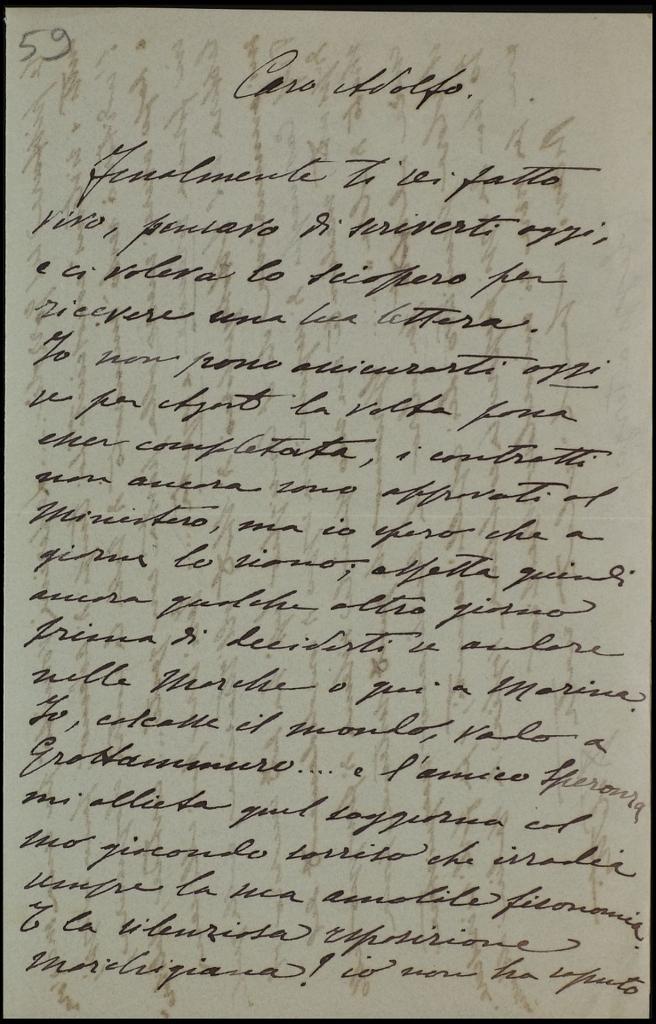 59
Caro Adolfo.
Finalmente ti sei fatto
vivo, pensavo di scriverti oggi,
e ci voleva lo sciopero per
ricevere una tua lettera.
Io non posso assicurarti oggi
se per Agost la volta possa
esser completata, i contratti
non ancora sono approvati al
Ministero, ma io spero che a
giorni lo siano; aspetta quindi
ancora qualche altro giorno
prima di deciderti se andare
nelle Marche o qui a Marina.
Io, cascasse il mondo, vado a
Grottammare.... e l'amico Speranza
mi allieta quel soggiorno col
suo giocondo sorriso che irradia
sempre la sua amabile fisonomia.
E la silenziosa esposizione
marchigiana! io non ho saputo